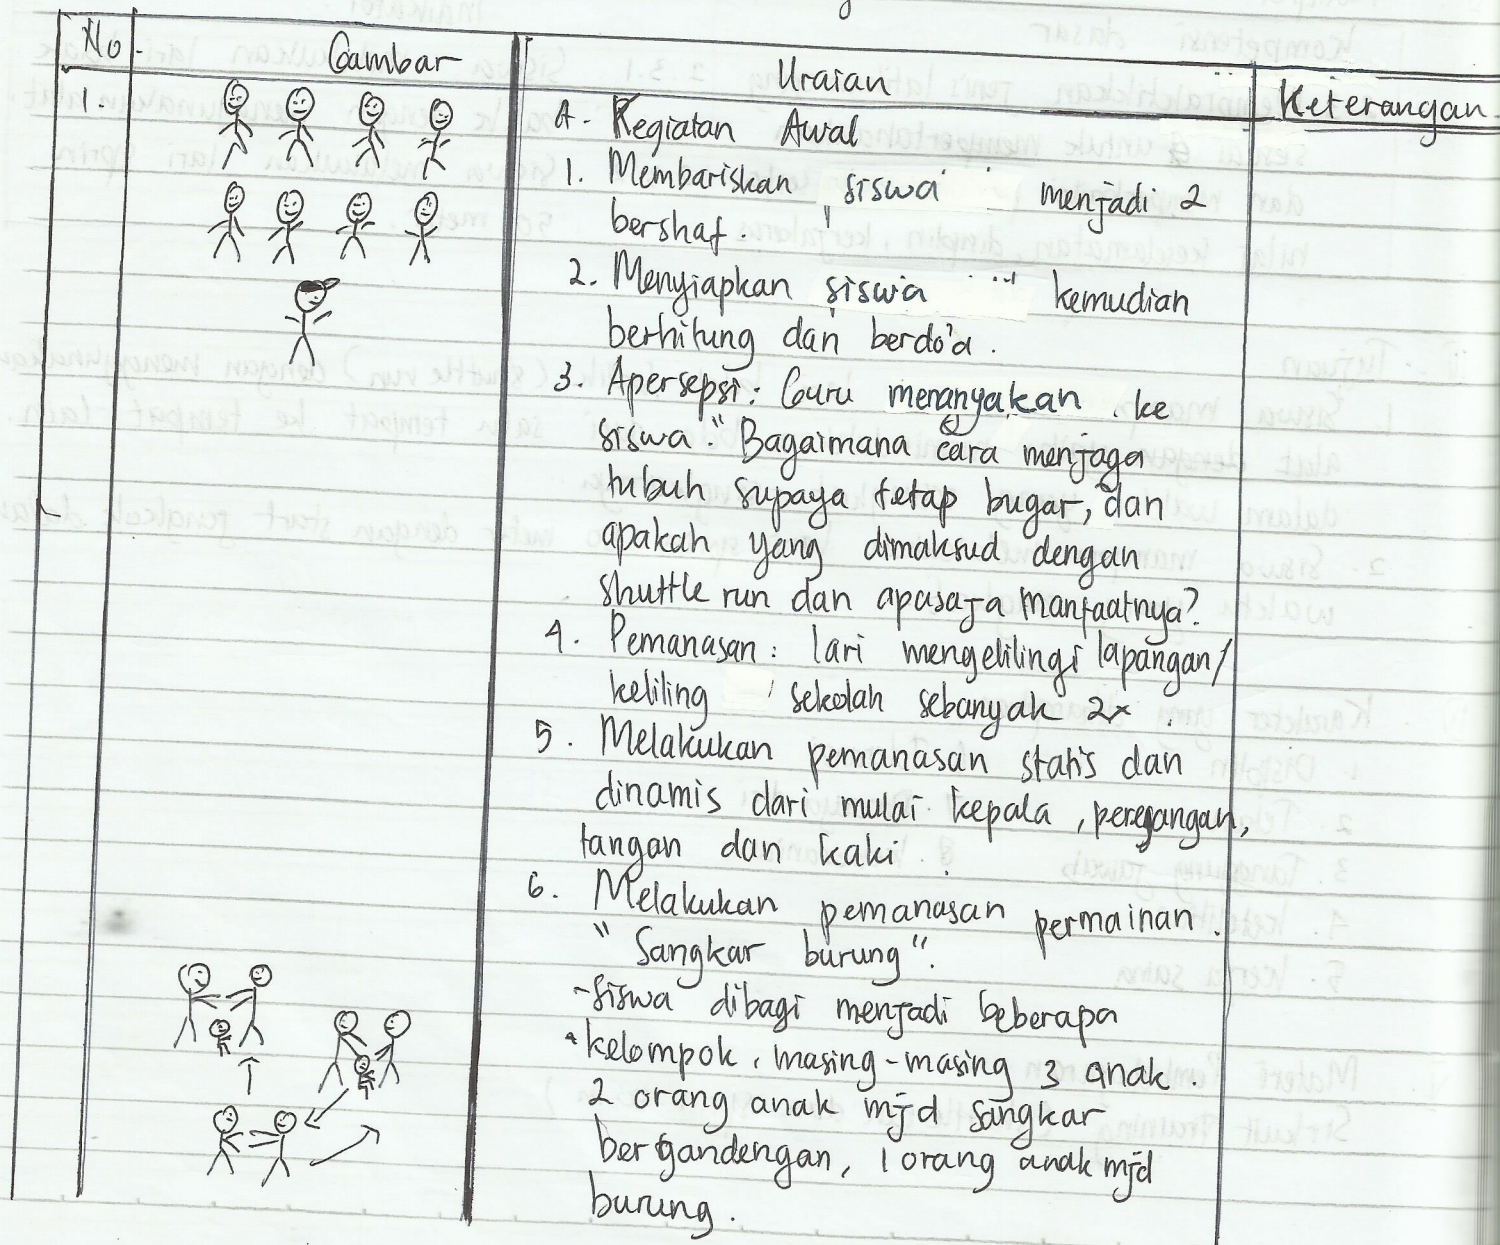 No. Gambar Uraian Keterangan
1.
A. Kegiatan Awal
1. Membariskan siswa menjadi 2
bershaf.
2. Menyiapkan siswa kemudian
berhitung dan berdo'a.
3. Apersepsi: Guru menanyakan ke
siswa." Bagaimana cara menjaga
tubuh supaya tetap bugar, dan
apakah yang dimaksud dengan
shuttle run dan apasaja manfaatnya?
4. Pemanasan: lari mengelilingi lapangan/
keliling sekolah sebanyak 2x.
5. Melakukan pemanasan statis dan
dinamis dari mulai kepala, peregangan,
tangan dan kaki.
6. Melakukan pemanasan permainan.
"Sangkar burung".
- siswa dibagi menjadi beberapa
kelompok, masing-masing 3 anak.
2 orang anak mjd sangkar
bergandengan, 1 orang anak mjd
burung.